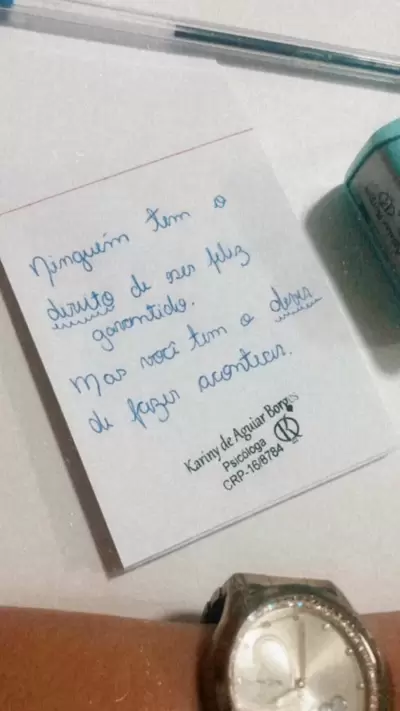 Ninguém tem o
direito de ser feliz
garantido.
Mas você tem o dever
de fazer acontecer.
Kariny de Aguiar Borges
Psicóloga
CRP-16/8784